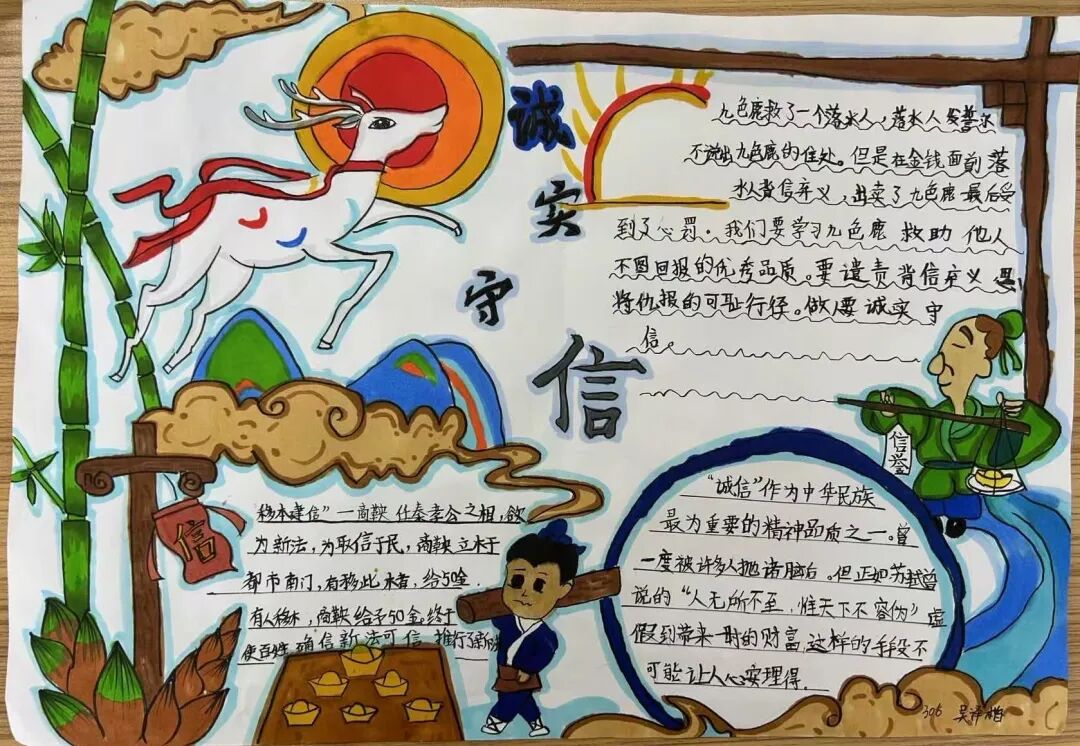 诚
实
守
信
九色鹿救了一个落水人，落水人发誓永
不说出九色鹿的住处。但是在金钱面前落
水人背信弃义，出卖了九色鹿最后受
到了心罚。我们要学习九色鹿 救助 他人
不图回报的优秀品质。要谴责背信弃义 恩
将仇报的可耻行径。做人要诚实 守
信
信誉
信
移木建信”一商鞅 任秦孝公之相，欲
为新法，为取信于民，商鞅立木于
都市南门，有移此木者，给50金．
有人移木，商鞅给予50金。终于
使百姓 确信新法可信 推行了新法
“诚信”作为中华民族
最为重要的精神品质之一。曾
一度被许多人抛诸脑后。但正如苏轼曾
说的“人无所不至，惟天下不容伪”虚
假到带来一时的财富，这样的手段不
可能让人心安理得．
306 吴泽